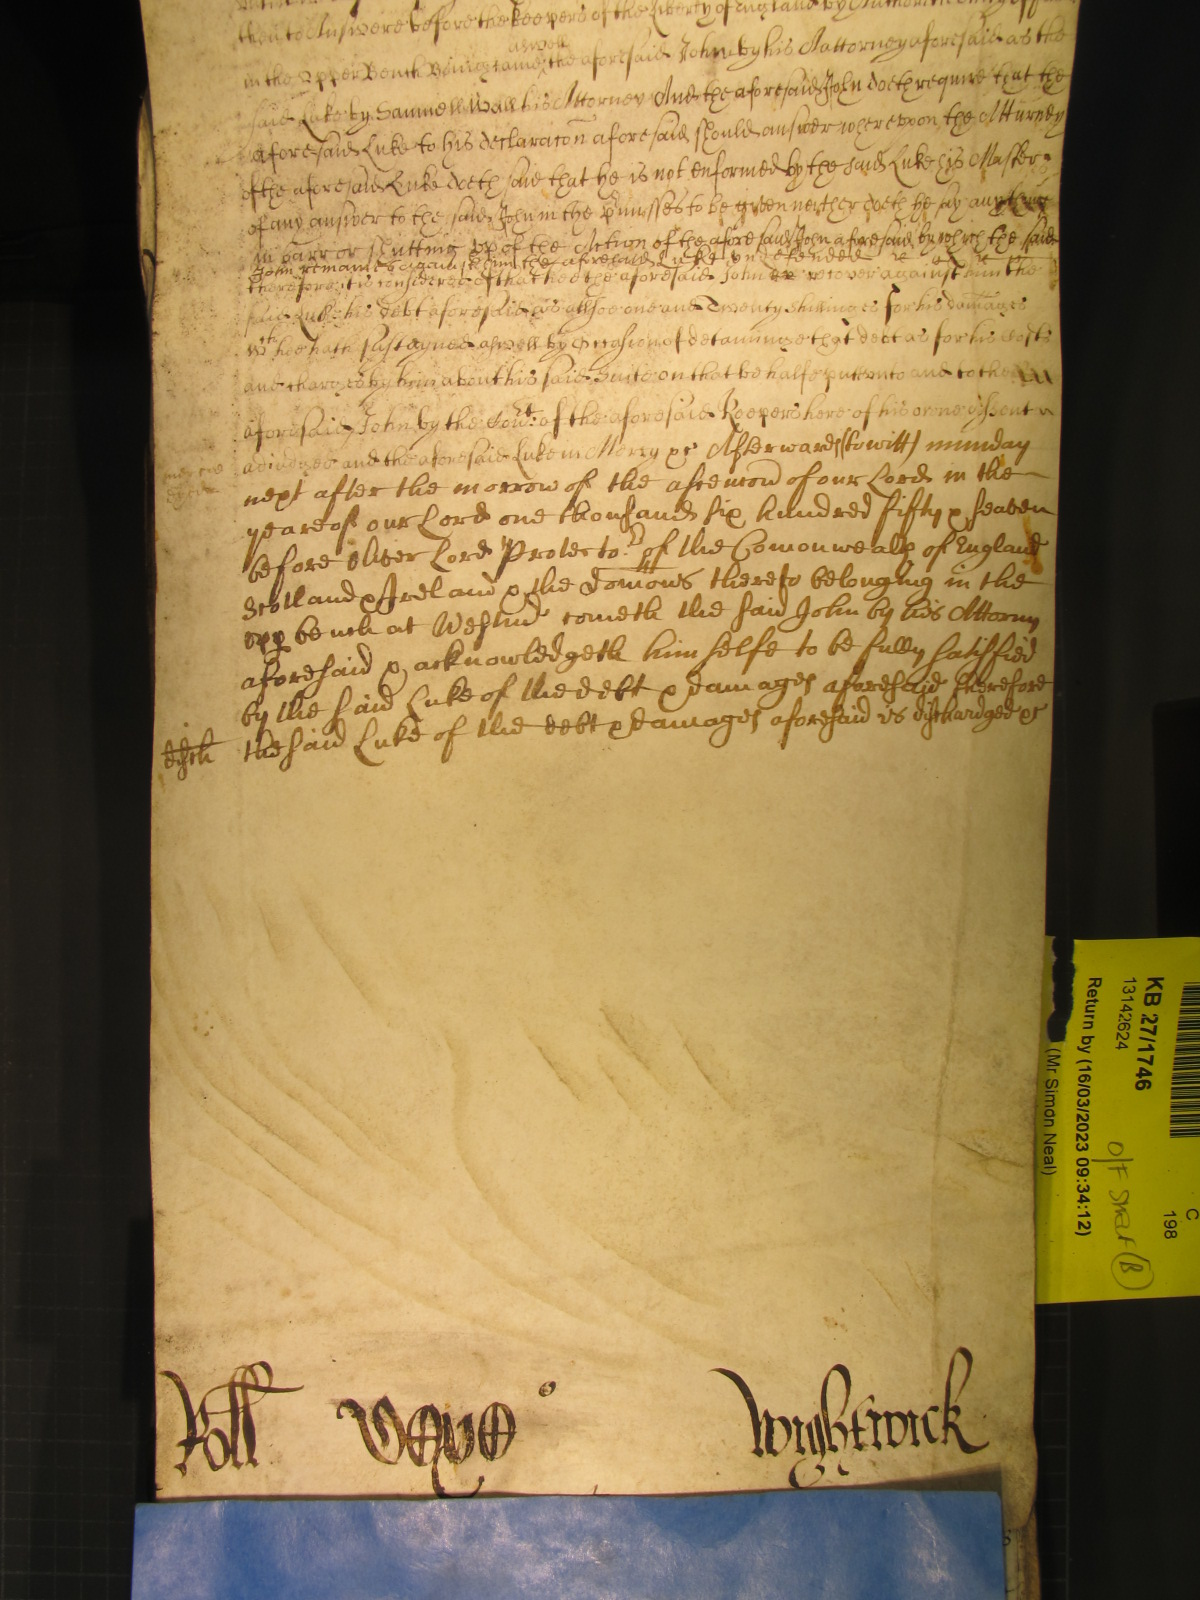 then to Answere before the keepers of the Liberty of England by Authoritie
aswell
in the Upper Bench the aforesaid John by his Attorney aforesaid as the
said Luke by Samuell Wall his Attorney And the aforesaid John doeth require that the
aforesaid Luke to his declaracon aforesaid should answer whereupon the Atturney
of the aforesaid Luke doeth saie that he is not enformed by the said Luke his Master
of any answer to the said John in the pmisses to be given neither doeth he say any thing
in barr or shutting up of the Action of the aforesaid John aforesaid by which the said
John remaines against him the aforesaid Luke undefended
therefore it is considered of that hee the aforesaid John recover against him the
said Luke his debt aforesaid as allsoe one and Twenty shillinges for his damages
wch hee hath sustayned aswell by Occasion of detaininge that debt as for his Costs
and charges by him about his said Suite on that behalfe putt unto and to the
aforesaid John by the Court of the aforesaid Keepers here of his owne assent
adiudged and the aforesaid Luke in Mercy &c Afterwards (to witt) munday
next after the morrow of the Ascencon of our Lord in the
yeare of our Lord one thousand six hundred fifty & seaven
before Oliver Lord Protector of the Comonwealth of England
Scotland & Ireland & the domions thereto belonging in the
upp bench at Westmr cometh the said John by his Attorny
aforesaid & acknowledgeth himselfe to be fully satisfied
by the said Luke of the debt & damages aforesaid therefore
disch
the said Luke of the debt & damages aforesaid is dischardged &c
Roll
Wightwick
KB 27/1746
13142624
Return by (16/03/2023 09:34:12)
(Mr Simon Neal)
C
198